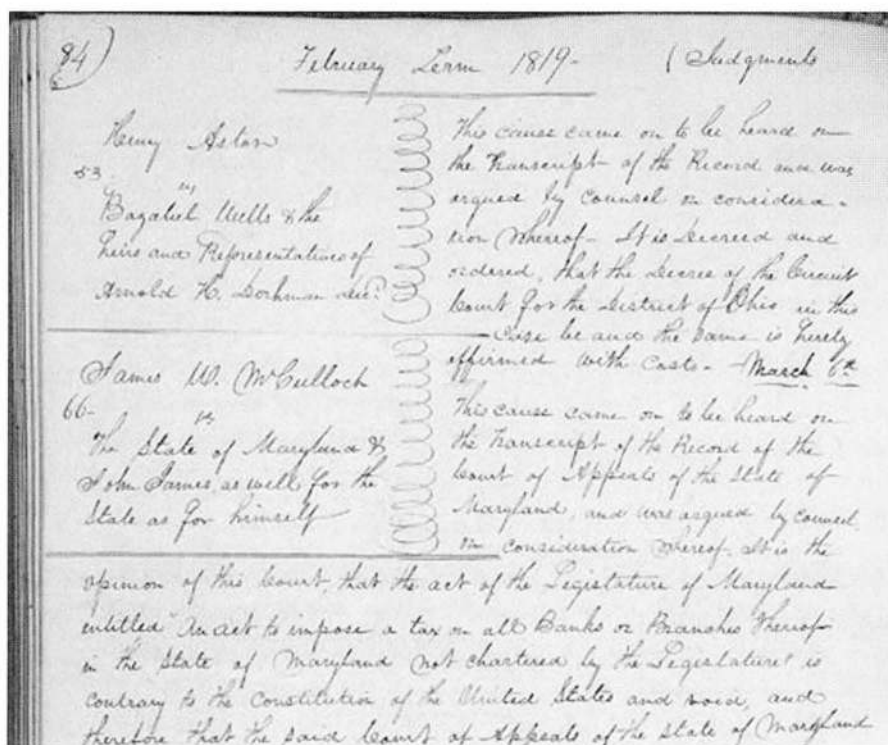 84)
February Term 1819-
(Judgments
Henry Aston
53.
vs
Bazaliel Wells & the
Heirs and Representatives of
Arnold H. Dorhman decd.
This cause came on to be heard on
the Transcript of the Record and was
argued by Counsel on considera-
tion Whereof- It is Decreed and
ordered, that the Decree of the Circuit
Court for the District of Ohio in this
Case be and the same is hereby
affirmed with Costs- March 6th
James W. McCulloch
66-
vs
The State of Maryland &
John James, as well for the
State as for himself
This cause came on to be heard on
the Transcript of the Record of the
Court of Appeals of the State of
Maryland, and was argued by counsel,
on consideration whereof, It is the
opinion of this Court, that the act of the Legislature of Maryland
entitled "An act to impose a tax on all Banks or Branches thereof
in the State of Maryland not chartered by the Legislature" is
contrary to the Constitution of the United States and void, and
therefore that the said Court of Appeals of the State of Maryland